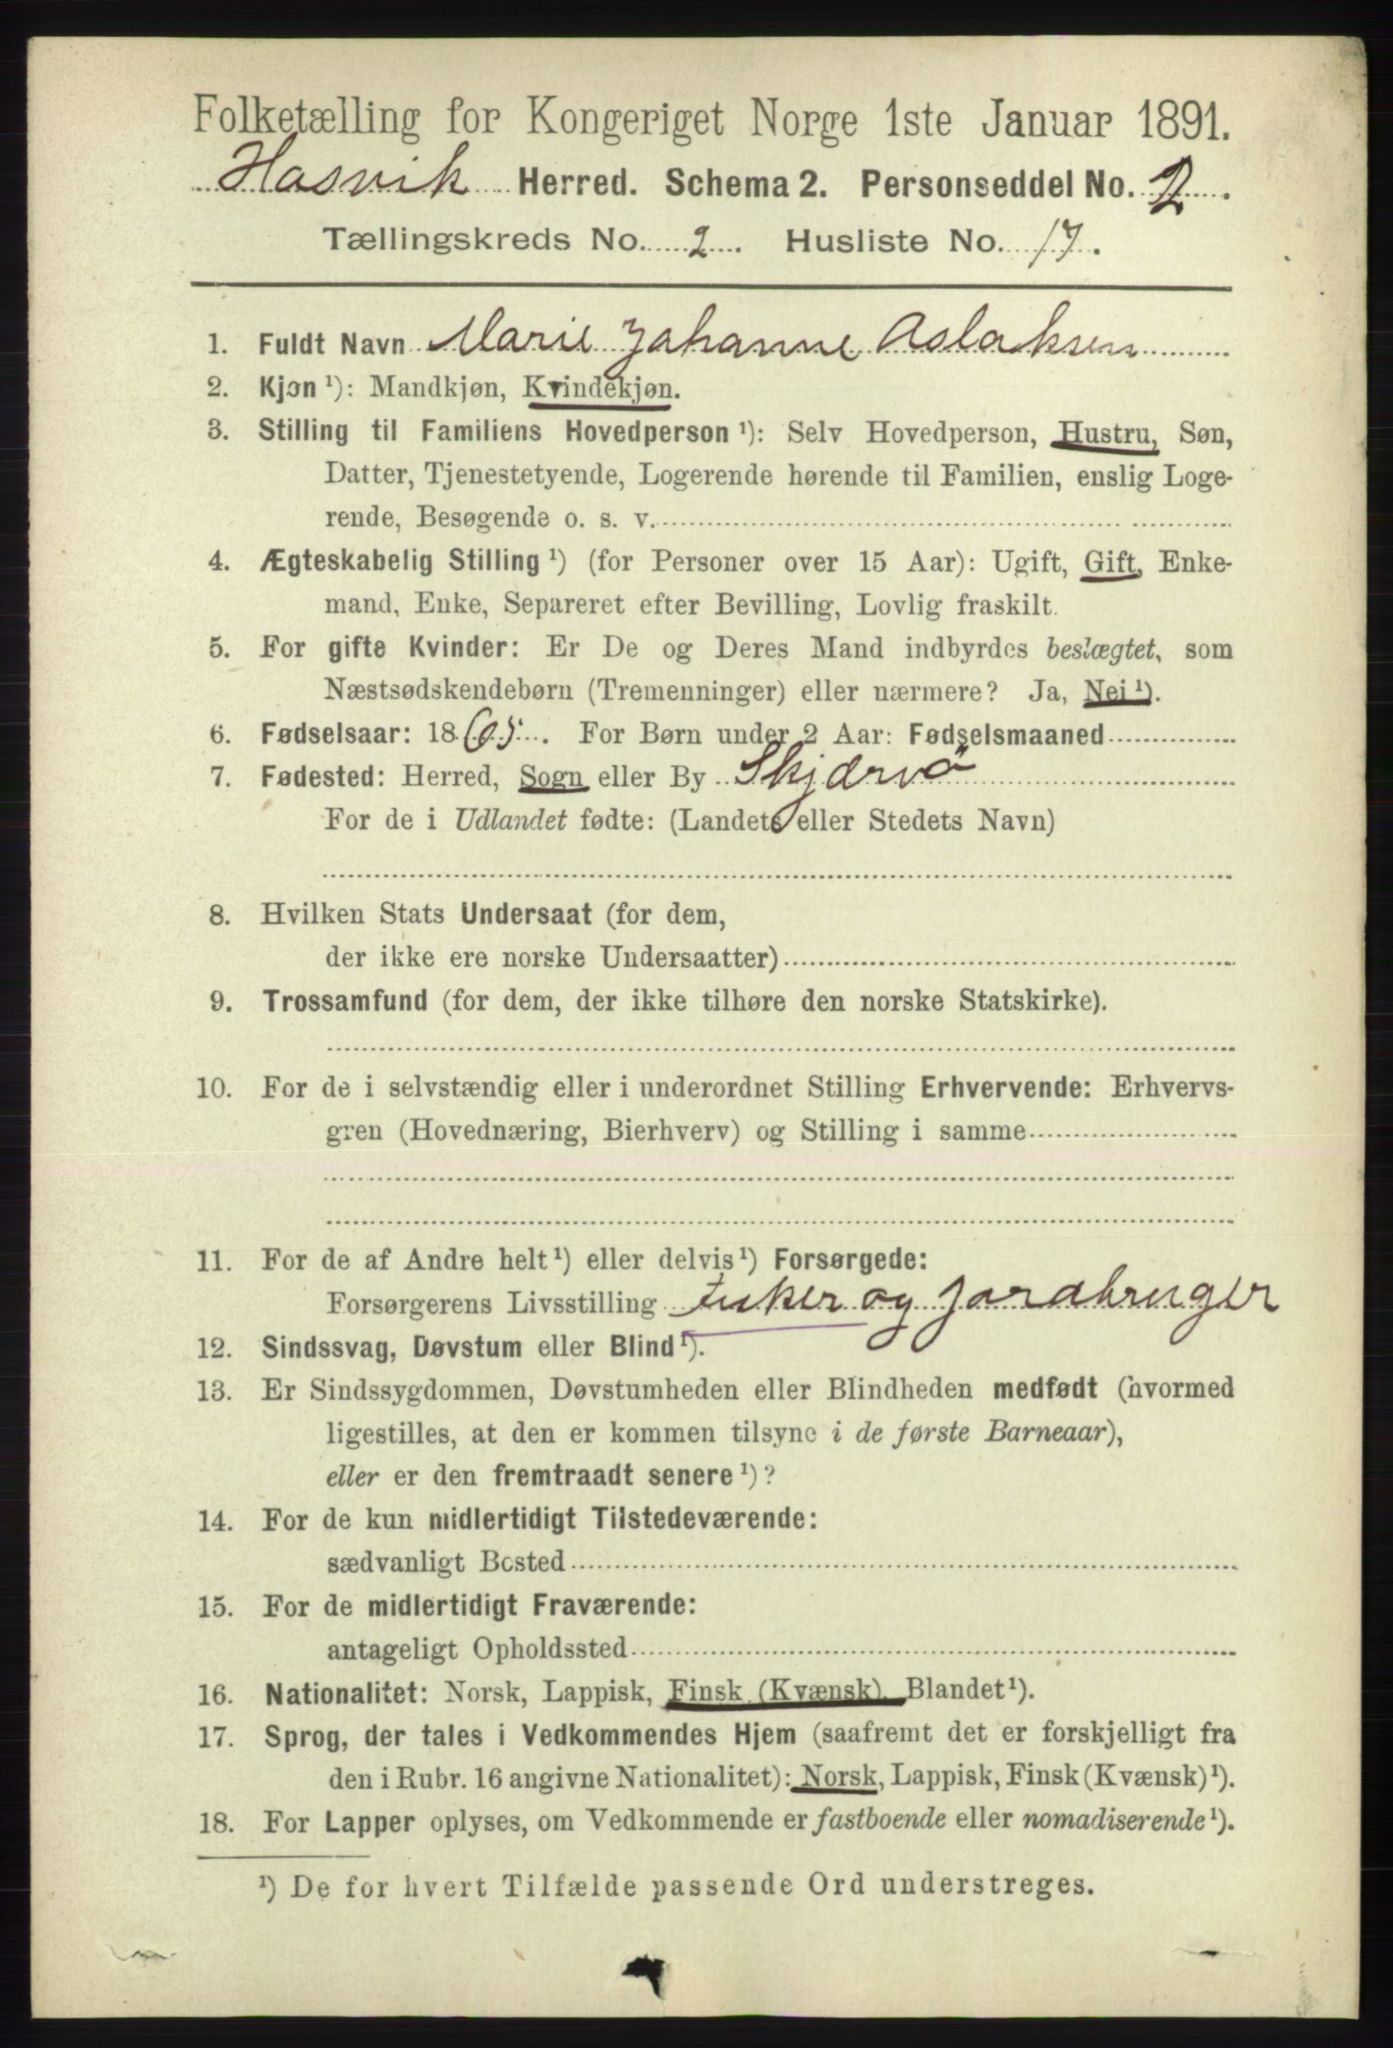 Folketælling for Kongeriget Norge 1ste Januar 1891.
Hasvik Herred. Schema 2. Personseddel No. 2.
Tællingskreds No. 2. Husliste No. 17.
1. Fuldt Navn Marie Johanne Aslaksen
2. Kjøn ¹): Mandkjøn, Kvindekjøn.
3. Stilling til Familiens Hovedperson ¹): Selv Hovedperson, Hustru, Søn,
Datter, Tjenestetyende, Logerende hørende til Familien, enslig Loge-
rende, Besøgende o. s. v.
4. Ægteskabelig Stilling ¹) (for Personer over 15 Aar): Ugift, Gift, Enke-
mand, Enke, Separeret efter Bevilling, Lovlig fraskilt.
5. For gifte Kvinder: Er De og Deres Mand indbyrdes beslægtet, som
Næstsødskendebørn (Tremenninger) eller nærmere? Ja, Nei ¹).
6. Fødselsaar: 1865. For Børn under 2 Aar: Fødselsmaaned
7. Fødested: Herred, Sogn eller By Skjærvö
For de i Udlandet fødte: (Landets eller Stedets Navn)
8. Hvilken Stats Undersaat (for dem,
der ikke ere norske Undersaatter)
9. Trossamfund (for dem, der ikke tilhøre den norske Statskirke).
10. For de i selvstændig eller i underordnet Stilling Erhvervende: Erhvervs-
gren (Hovednæring, Bierhverv) og Stilling i samme
11. For de af Andre helt ¹) eller delvis ¹) Forsørgede:
Forsørgerens Livsstilling Fisker og Jordbruger
12. Sindssvag, Døvstum eller Blind ¹).
13. Er Sindssygdommen, Døvstumheden eller Blindheden medfødt (hvormed
ligestilles, at den er kommen tilsyne i de første Barneaar),
eller er den fremtraadt senere ¹)?
14. For de kun midlertidigt Tilstedeværende:
sædvanligt Bosted
15. For de midlertidigt Fraværende:
antageligt Opholdssted
16. Nationalitet: Norsk, Lappisk, Finsk (Kvænsk), Blandet ¹).
17. Sprog, der tales i Vedkommendes Hjem (saafremt det er forskjelligt fra
den i Rubr. 16 angivne Nationalitet): Norsk, Lappisk, Finsk (Kvænsk) ¹).
18. For Lapper oplyses, om Vedkommende er fastboende eller nomadiserende ¹).
¹) De for hvert Tilfælde passende Ord understreges.